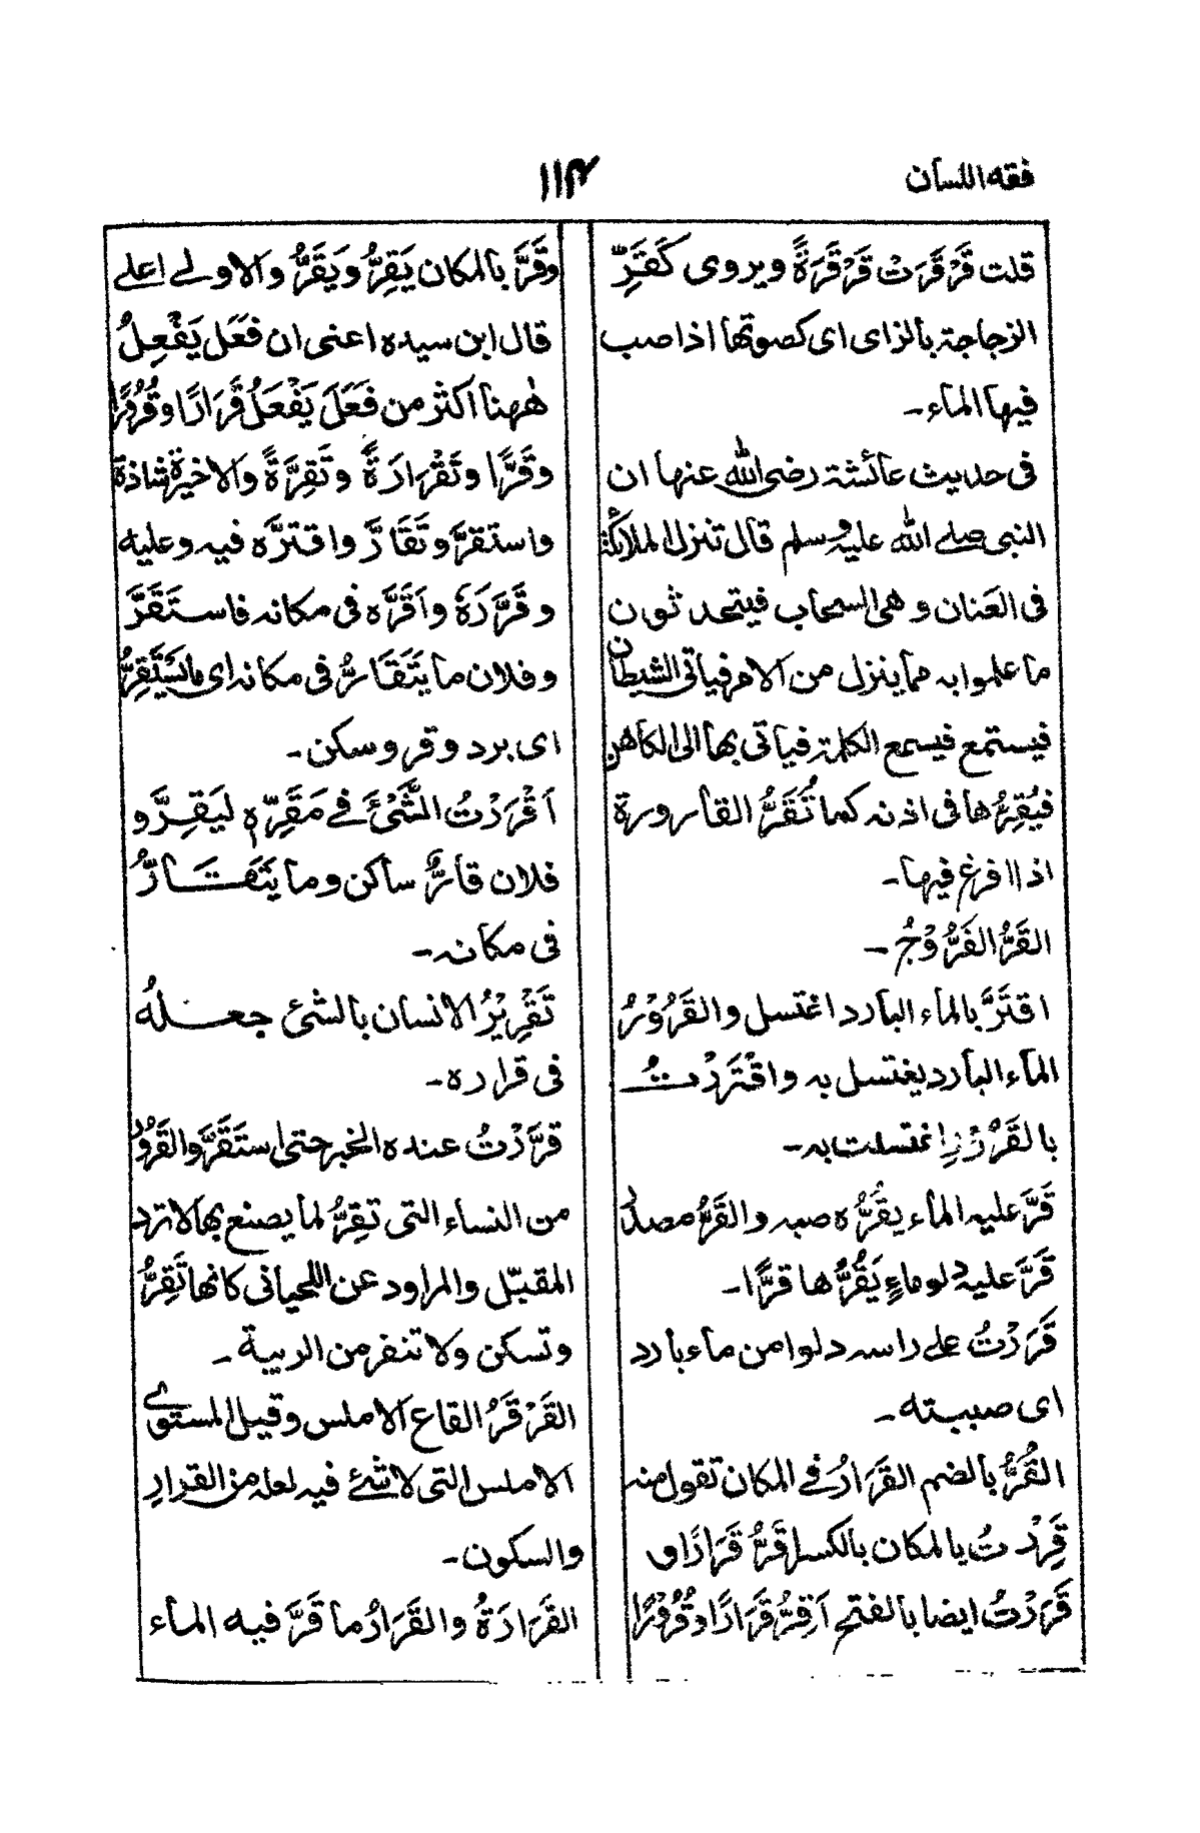 فقه اللسان
١١٤
قلت قَرْقَرَتْ قَرْقَرَةً ويروى كَقَرِّ
الزجاجة بالزاى اى كصوتها اذا صب
فيها الماء ـ
فى حديث عائشة رضى الله عنها ان
النبى صلے الله عليه وسلم قال تنزل الملائكة
فى العَنان وهى السحاب فيتحدثون
ما علموا به مما ينزل من الامر فياتى الشيطان
فيستمع فيسمع الكلمة فياتى بها الى الكاهن
فيُقِرُّها فى اذنه كما تُقَرُّ القارورة
اذا افرغ فيها ـ
القَرُّ الفَرُّوْجُ ـ
اقتَرَّ بالماء البارد اغتسل والقَرُوْرُ
الماء البارد يغتسل به واقْتَرَرْتُ
بالقَرُوْرِ اغتسلت به ـ
قَرَّ عليه الماء يقُرُّه صبه والقَرُّ مصدر
قَرَّ عليه دلو ماءٍ يَقُرُّها قرًّا ـ
قَرَرْتُ على راسه دلوا من ماء بارد
اى صببته ـ
القُرُّ بالضم القَرَارُ فے المكان تقول منه
قَرِرْتُ بالمكان بالكسر اَقَرُّ قَرَارًا و
قَرَرْتُ ايضا بالفتح اَقِرُّ قَرَارًا وقُرُوْرًا
وقَرَّ بالمكان يَقِرُّ ويَقَرُّ والاولے اعلے
قال ابن سيده اعنى ان فعَل يَفْعِلُ
هٰهنا اكثر من فَعَلَ يَفْعَلُ قَرَارًا وقُرُوْرًا
وقَرًّا وتَقْرَارَةً وتَقِرَّةً والاخيرة شاذة
واستقرَّ وتَقَارَّ واقترَّه فيه وعليه
وقَرَّرَهٗ واَقَرَّه فى مكانه فاستَقَرَّ
وفلان ما يتَقَارُّ فى مكانه اى ما يَسْتَقِرُّ
اى برد وقر وسكن ـ
اَقْرَرْتُ الشَّئَ فے مَقَرِّه لِيَقِرَّ و
فلان قارٌّ ساكن وما يَتَقَارُّ
فى مكانه ـ
تَقْرِيْرُ الانسان بالشئ جعلهُ
فى قراره ـ
قرَّرْتُ عنده الخبر حتى استَقَرَّ والقَرُوْر
من النساء التى تقِرُّ لما يصنع بها لا ترد
المقبّل والمراود عن اللحيانى كانها تَقِرُّ
وتسكن ولا تنفر من الريبة ـ
القَرْقَرُ القاع الاملس وقيل المستوى
الاملس التى لا شئ فيه لعله من القرارِ
والسكون ـ
القَرَارَةُ والقَرَارُ ما قَرَّ فيه الماء